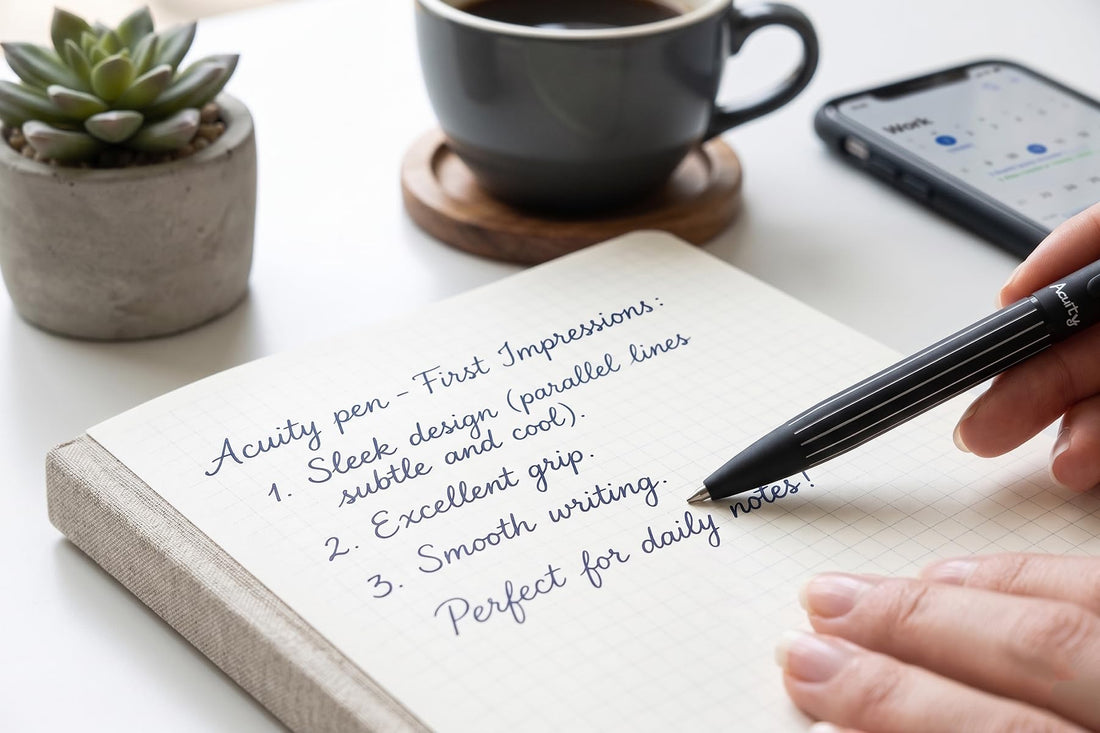 Acuity pen - First Impressions:
1. Sleek design (parallel lines
subtle and cool).
2. Excellent grip.
3. Smooth writing.
Perfect for daily notes!
Work